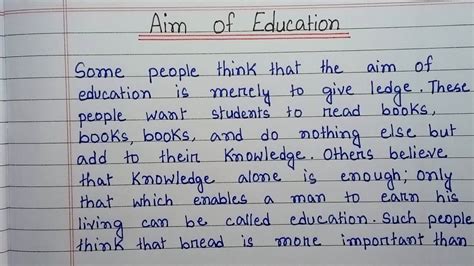 Aim of Education
Some people think that the aim of
education is merely to give ledge. These
people want students to read books,
books, books, and do nothing else but
add to their knowledge. Others believe
that knowledge alone is enough; only
that which enables a man to earn his
living can be called education. Such people
think that bread is more important than